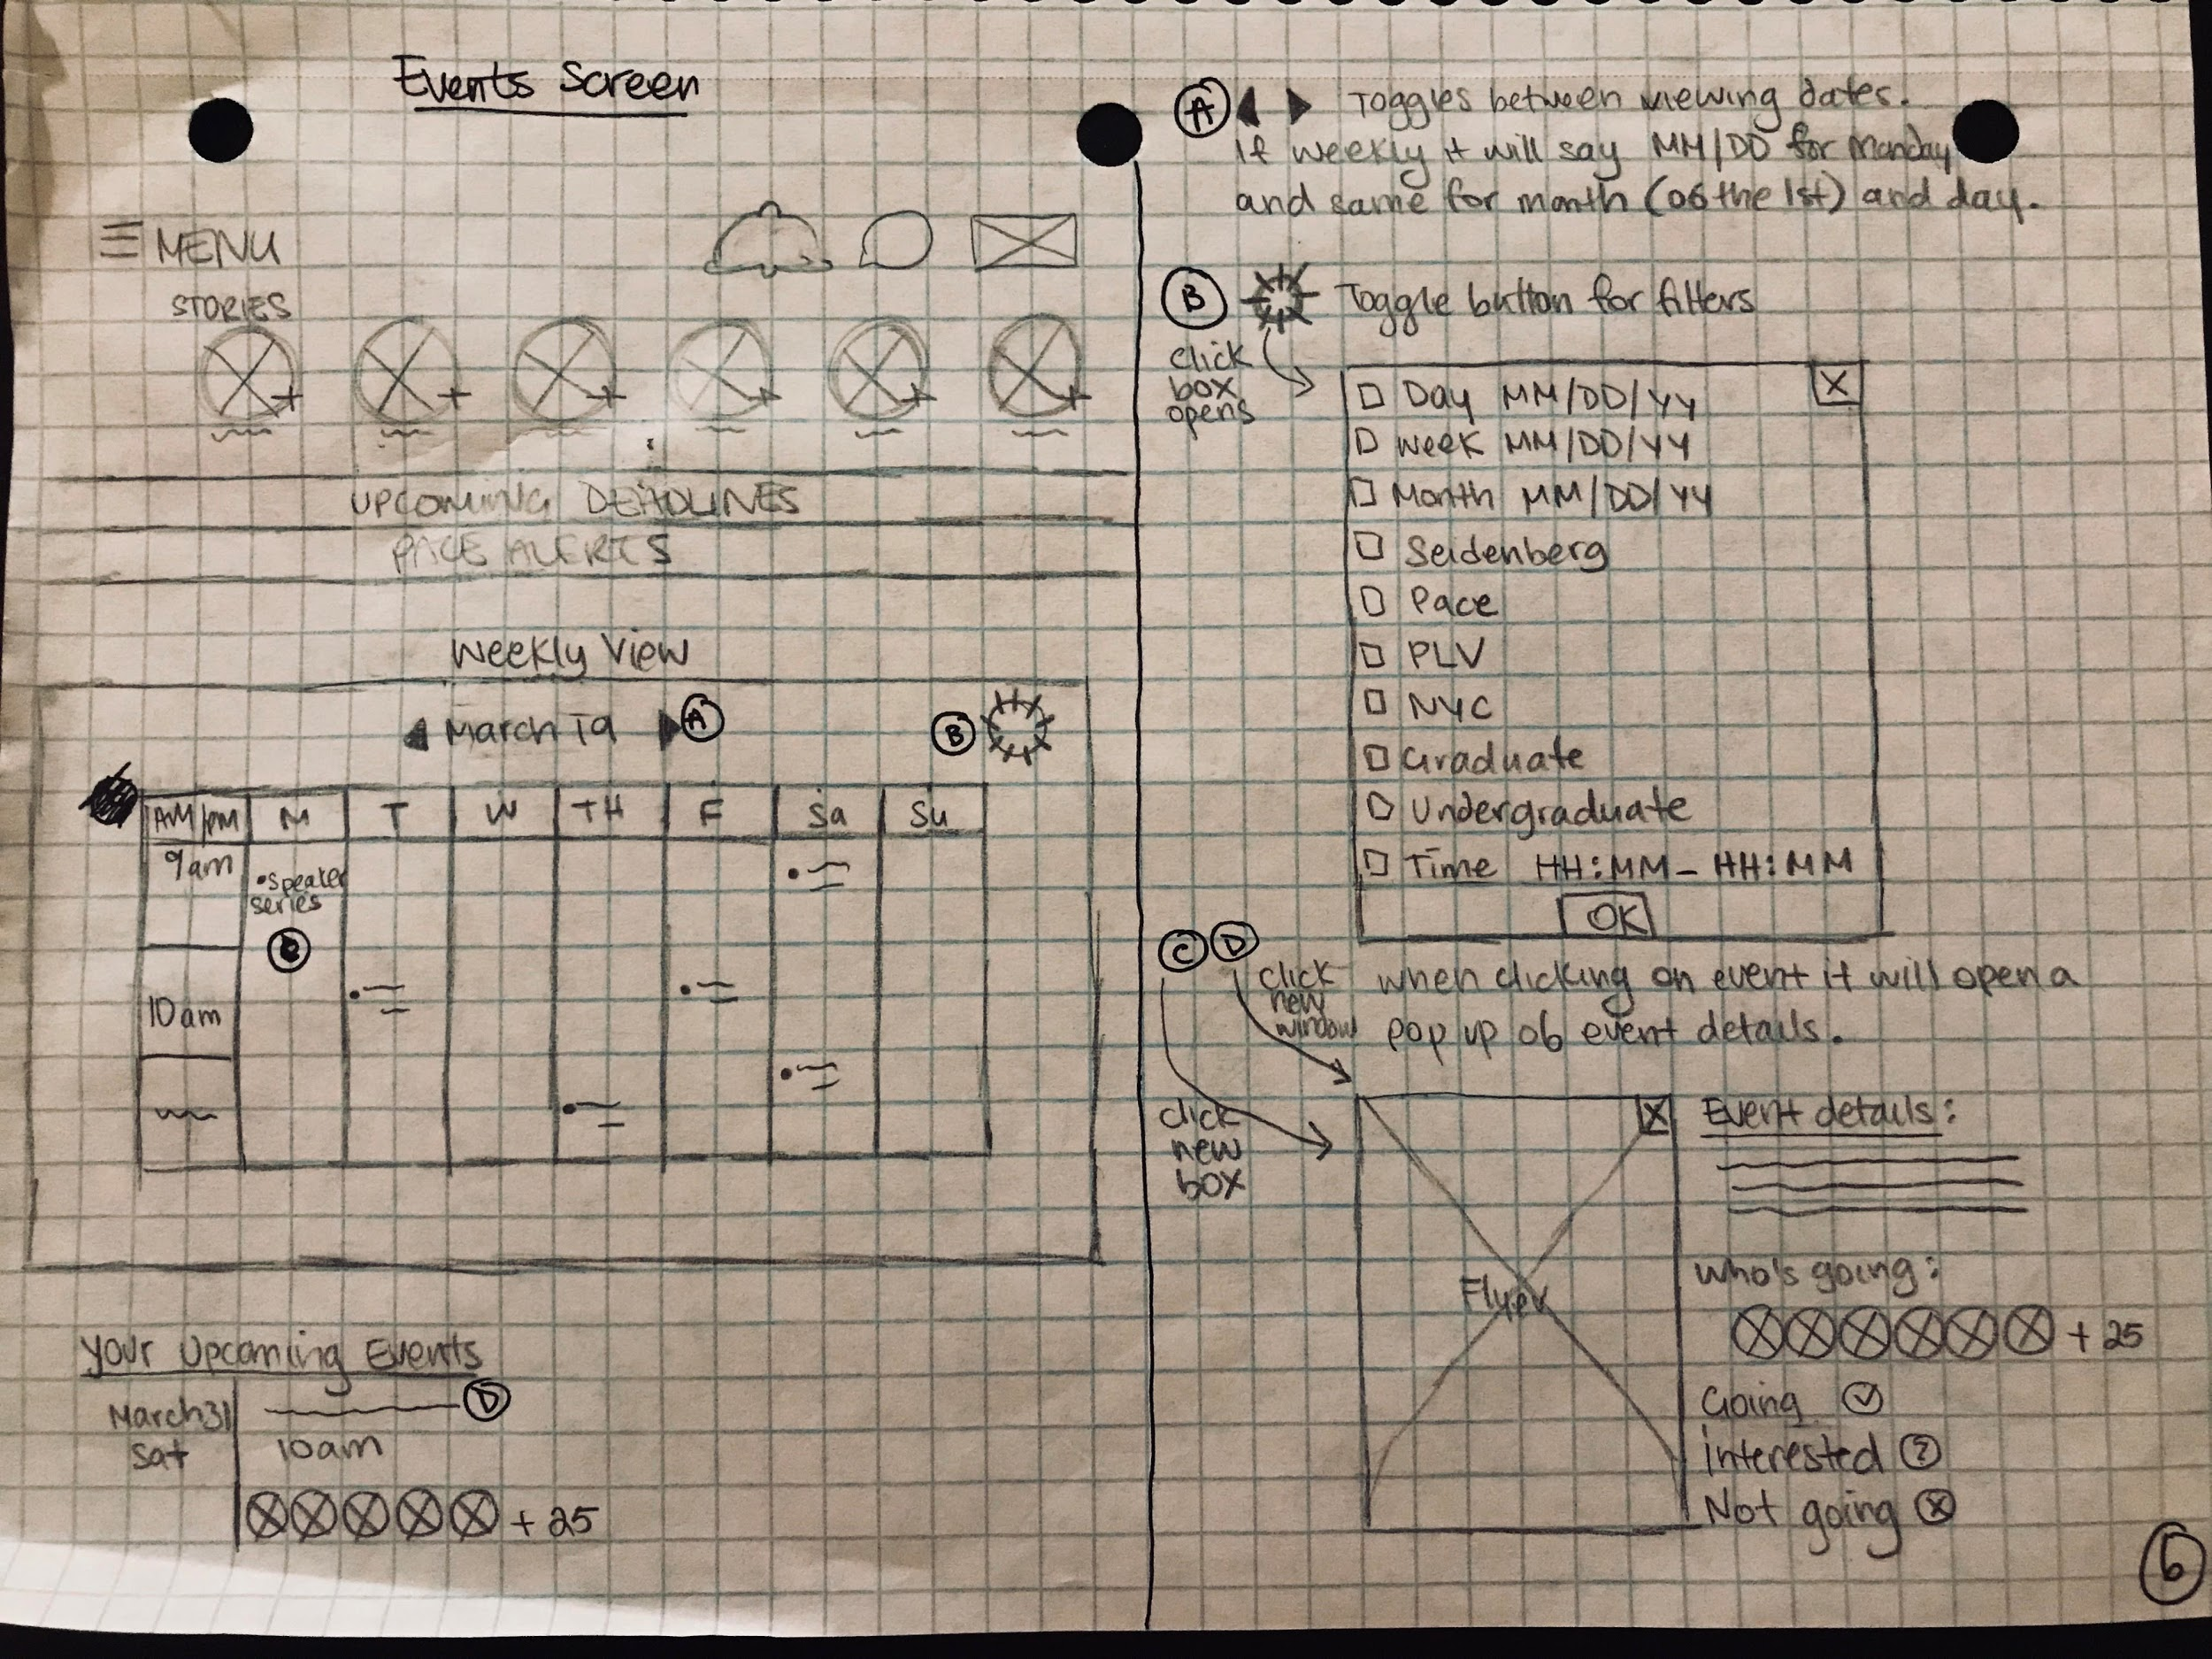 Events Screen
MENU
STORIES
UPCOMING DEADLINES
PACE ALERTS
Weekly View
March 19 A
B
AM/PM M T W TH F Sa Su
9am
•Speaker
series
C
10am
Your Upcoming Events
March 31
Sat
D
10am
+ 25
A Toggles between viewing dates.
If weekly it will say MM/DD for Monday
and same for month (of the 1st) and day.
B Toggle button for filters
click
box
opens
X
Day MM/DD/YY
Week MM/DD/YY
Month MM/DD/YY
Seidenberg
Pace
PLV
NYC
Graduate
Undergraduate
Time HH:MM - HH:MM
OK
C D
click
new
window
when clicking on event it will open a
pop up of event details.
click
new
box
X
Flyer
Event details:
Who's going:
+ 25
Going
interested ?
Not going X
6